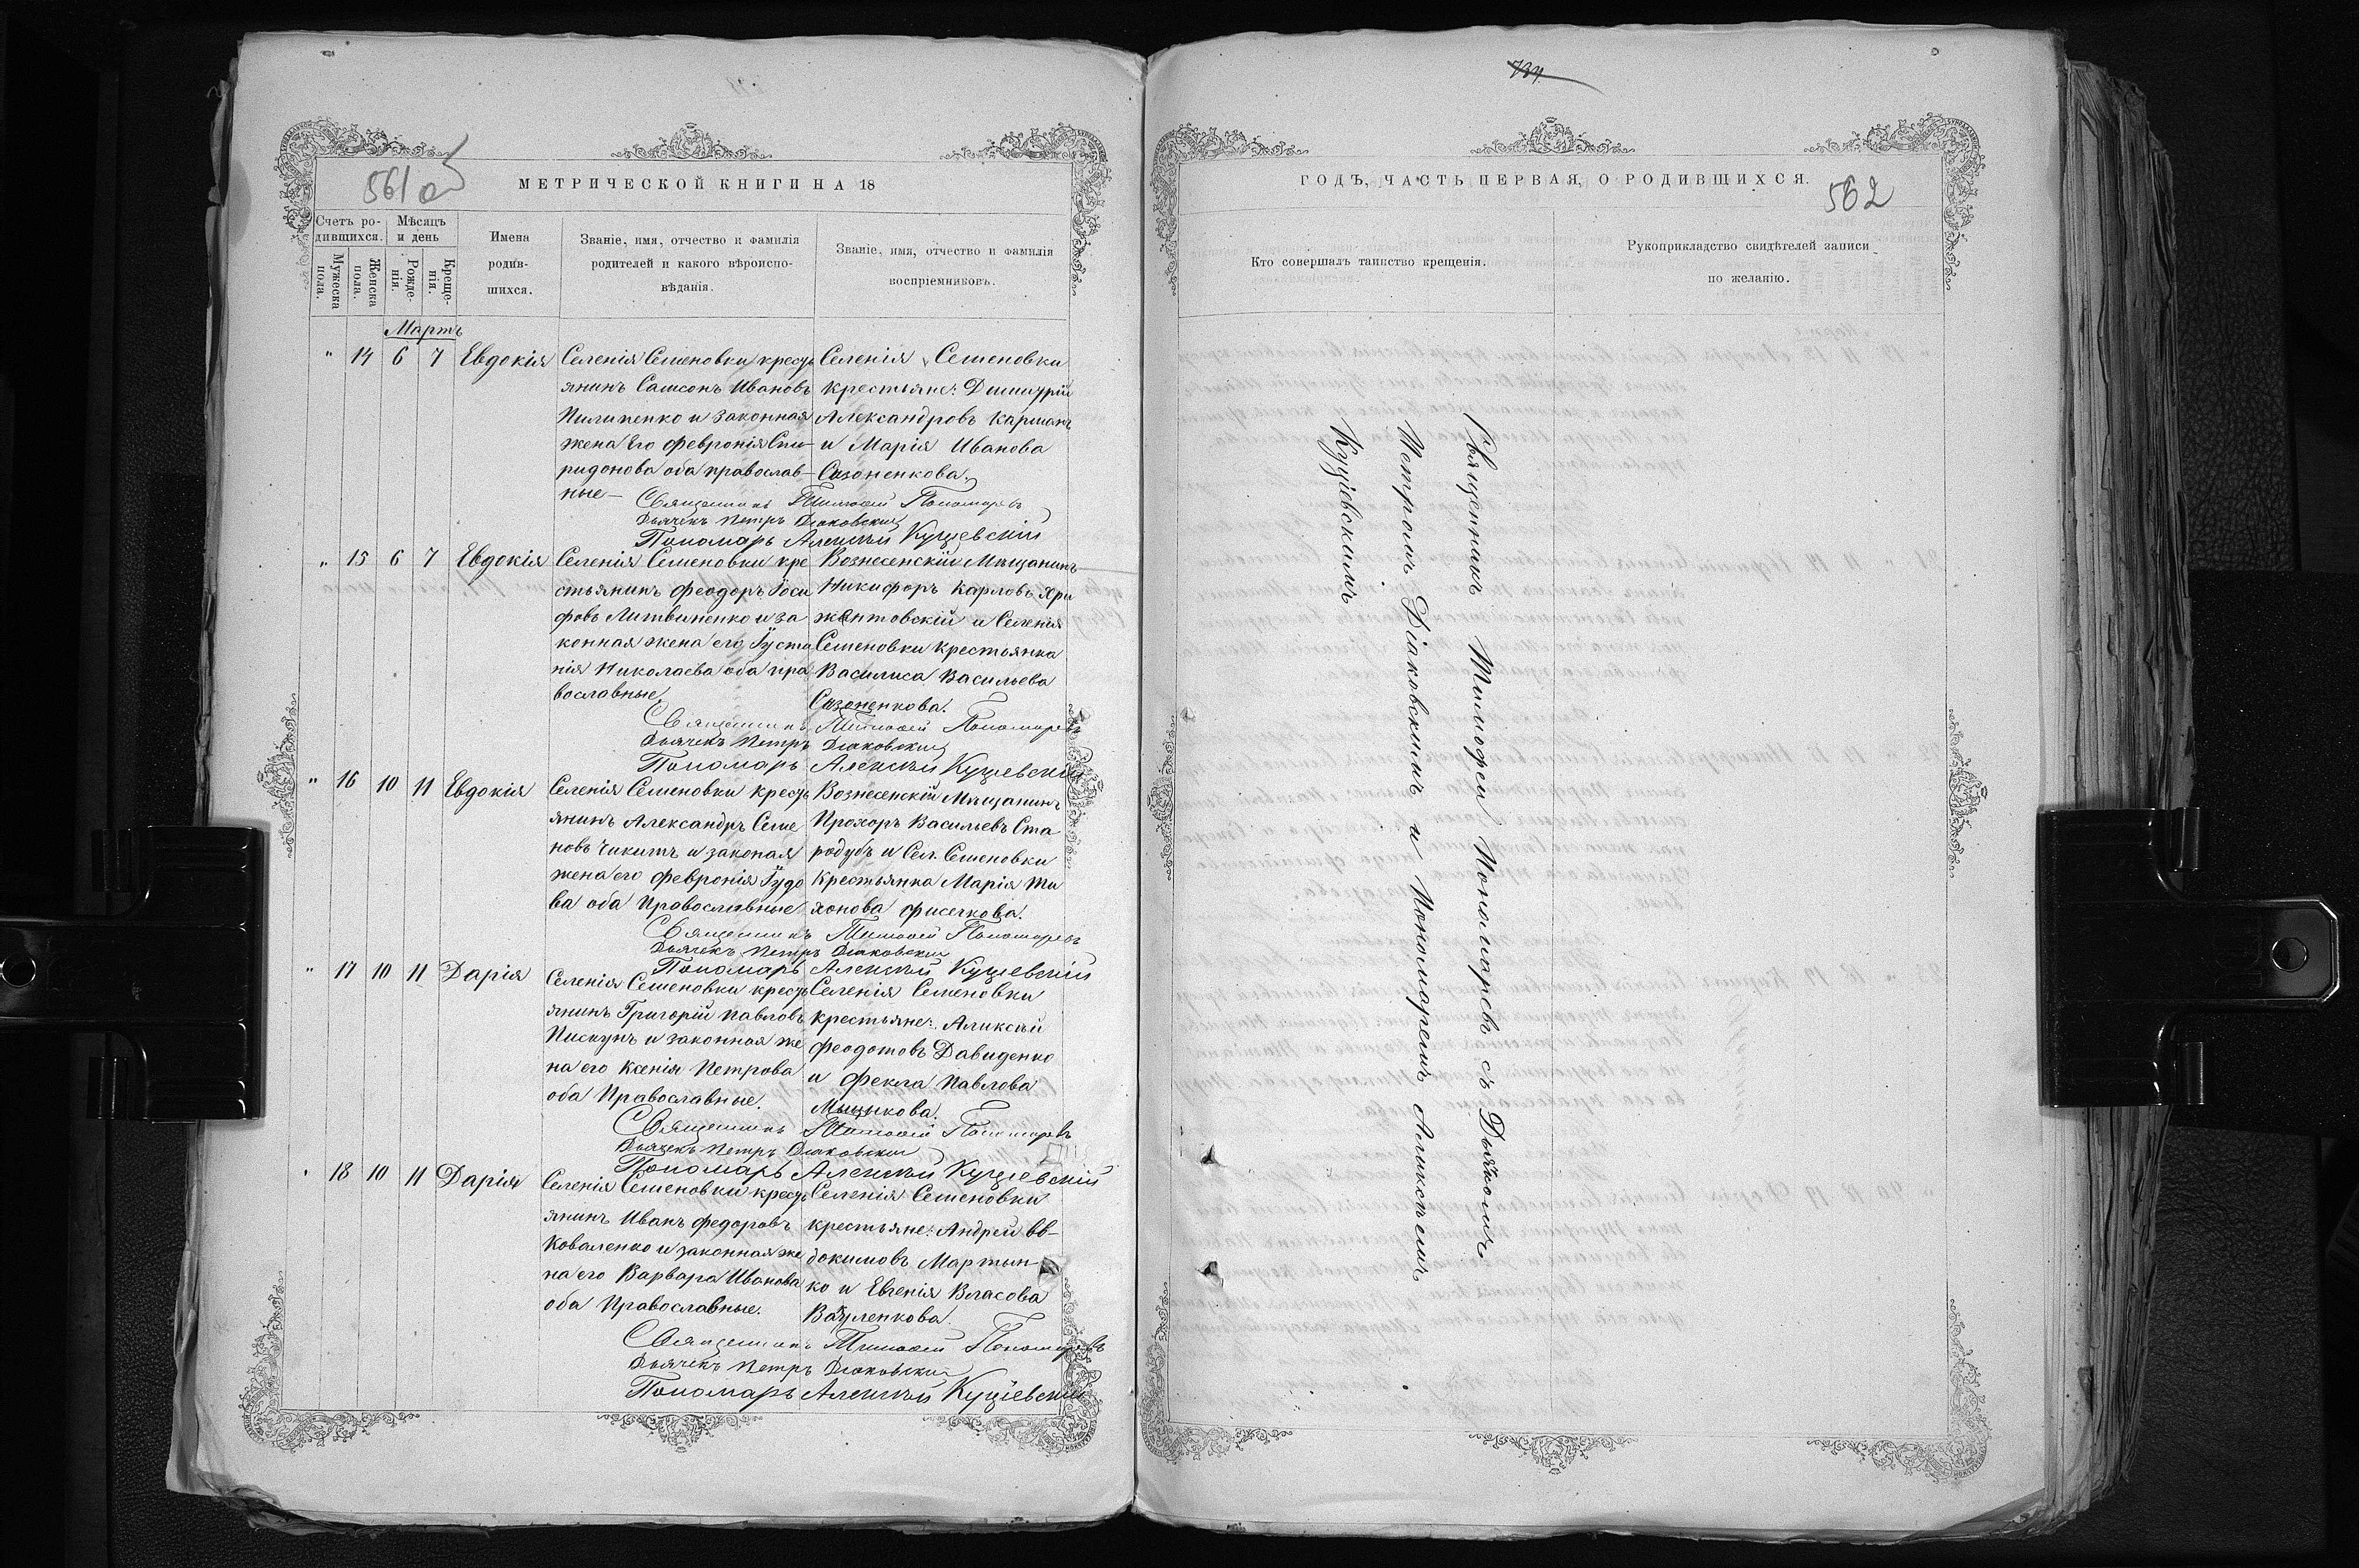 561 об
МЕТРИЧЕСКОЙ КНИГИ НА 18
Счетъ ро-
дившихся.
Мужеска
пола.
Женска
пола.
Мѣсяцъ
и день
Рожде-
нія.
Креще-
нія.
Имена
родив-
шихся.
Званіе, имя, отчество и фамилія
родителей и какого вѣроиспо-
вѣданія.
Званіе, имя, отчество и фамилія
воспріемниковъ.
Мартъ
" 14 6 7 Евдокія
Селенія Семеновки кресть
янинъ Самсонъ Ивановъ
Пилипенко и законная
жена его Февронія Спи-
ридонова оба православ-
ные-
Селенія Семеновки
крестьяне: Димитрій
Александровъ Кариманъ
и Марія Иванова
Сазоненкова.
Священникъ Тимофей Пономаревъ
Дьячекъ Петръ Діаковскій
Пономарь Алексѣй Кущевскій
" 15 6 7 Евдокія
Селенія Семеновки кре
стьянинъ Феодоръ Іоси
фовъ Литвиненко и за
конная жена его Іуста
нія Николаева оба пра
вославные
Вознесенскій Мѣщанинъ
Никифоръ Карловъ Хри
жантовскій и Селенія
Семеновки крестьянка
Василиса Васильева
Сазоненкова.
Священникъ Тимофей Пономаревъ
Дьячекъ Петръ Діаковскій
Пономарь Алексѣй Кущевскій
" 16 10 11 Евдокія
Селенія Семеновки кресть
янинъ Александръ Семе
новъ Чикитъ и законая
жена его Февронія Іудо
ва оба Православные
Вознесенскій Мѣщанинъ
Прохоръ Васильевъ Ста
родубъ и Сел. Семеновки
Крестьянка Марія Ти
хонова Фисечкова.
Священникъ Тимофей Пономаревъ
Дьячекъ Петръ Діаковскій
Пономарь Алексѣй Кущевскій
" 17 10 11 Дарія
Селенія Семеновки кресть
янинъ Григорій Павловъ
Пискунъ и законная же
на его Ксенія Петрова
оба Православные.
Селенія Семеновки
крестьяне: Аликсѣй
Феодотовъ Давиденко
и Фекла Павлова
Мищенкова.
Священникъ Тимофей Пономаревъ
Дьячекъ Петръ Діаковскій
Пономарь Алексѣй Кущевскій
" 18 10 11 Дарія
Селенія Семеновки кресть
янинъ Иванъ Федоровъ
Коваленко и законная же
на его Варвара Иванова
оба Православные.
Селенія Семеновки
крестьяне: Андрей Ев-
докимовъ Мартын-
ко и Евгенія Власова
Священникъ Тимофей Пономаревъ
Дьячекъ Петръ Діаковскій
Пономарь Алексѣй Кущіевскій
734
ГОДЪ, ЧАСТЬ ПЕРВАЯ, О РОДИВШИХСЯ.
562
Кто совершалъ таинство крещенія.
Рукоприкладство свидѣтелей записи
по желанію.
Священникъ Тимофей Пономаревъ съ Дьячкомъ
Петромъ Діаковскимъ и Пономаремъ Аликсѣемъ
Кущіевскимъ